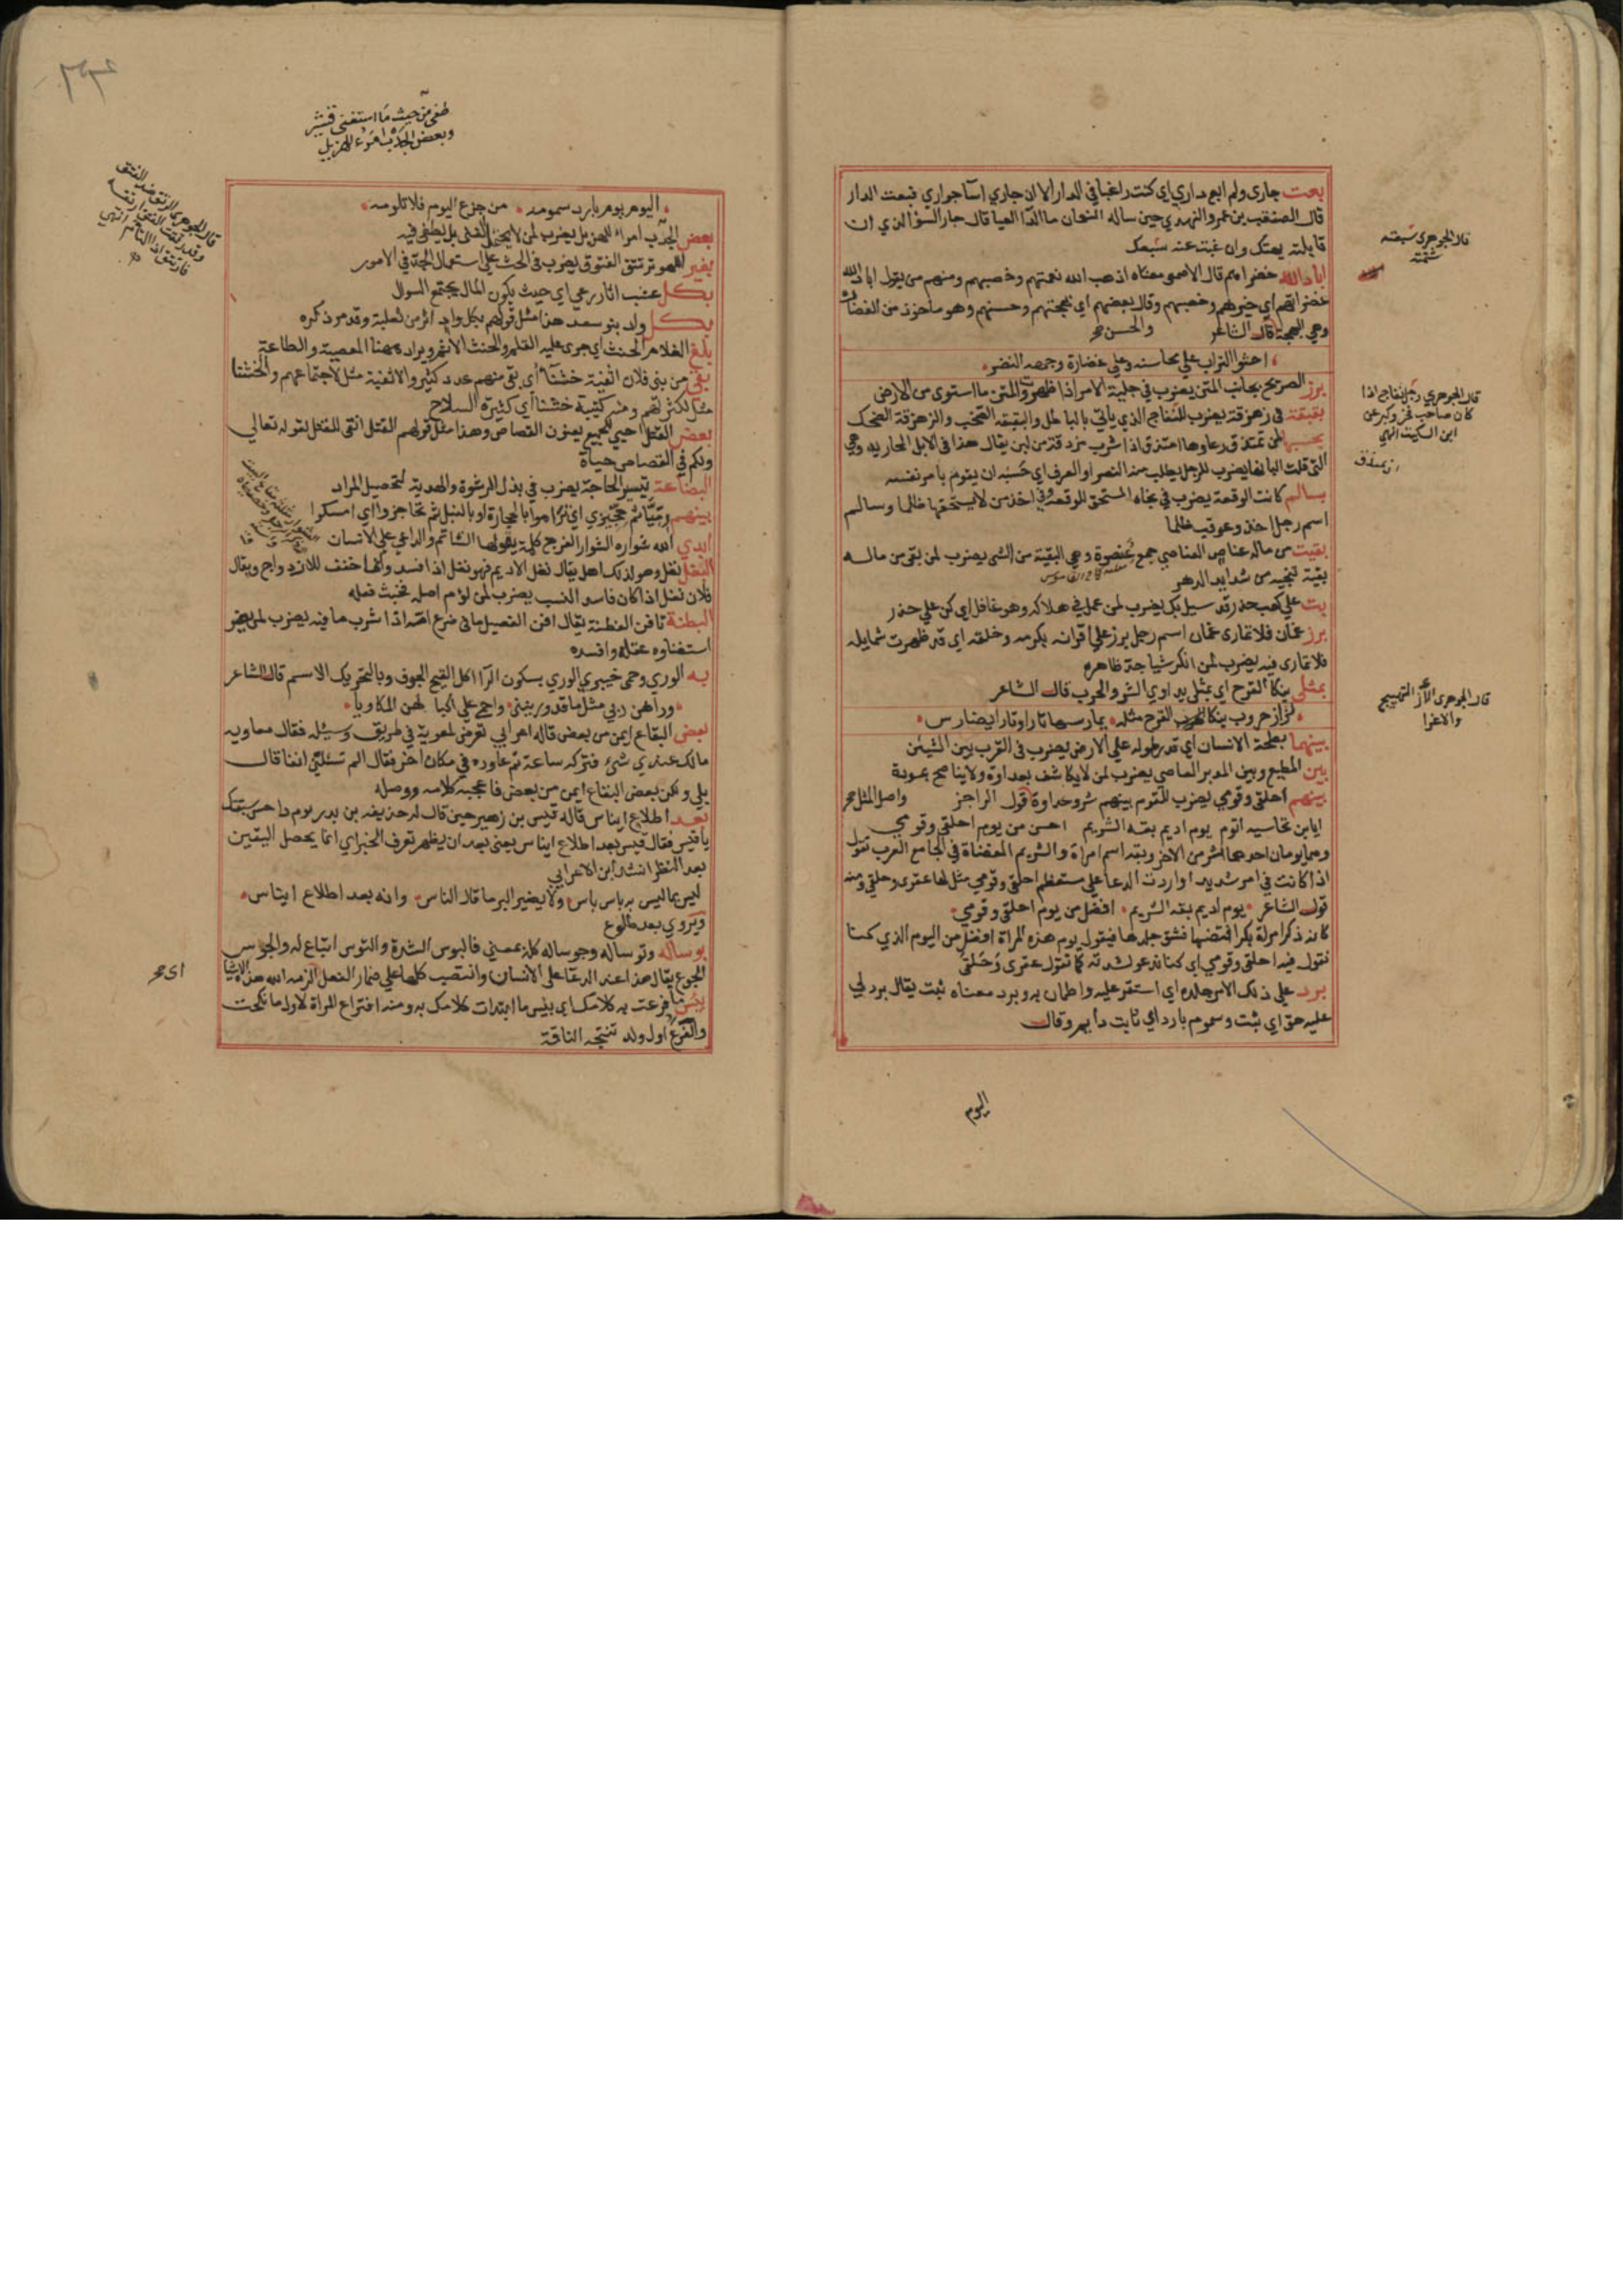 بعت جاري ولم ابع داري اي كنت راغبا في الدار الا ان جاري اسآ جواري فبعت الدار
قال الصقعب بن عمرو النهدي حين ساله النعمان ما الدآ العيا قال جار السوالذي ان
قابلته بهتك وان غبت عنه سبعك
قال الجوهري سبعته
شتمته
اباد الله خضراءهم قال الاصمعي معناه اذهب الله نعمتهم وخصبهم ومنهم من يقول اباد الله
غضراءهم اي خيرهم وخصبهم وقال بعضهم اي بهجتهم وحسنهم وهو ماخوذ من الغضارة
وهي البهجة والحسن قال الشاعر
احثوا التراب على محاسنه وعلى غضارة وجهه النضر
برز الصريح بجانب المتن يضرب في جلية الامر اذا ظهرت والمتن ما استوى من الارض
بقبقة في زهزقة يضرب للنفاج الذي ياتي بالباطل والبقبقة الصخب والزهزقة الضحك
قال الجوهري رجل نفاج اذا
كان صاحب فخر وكبر عن
ابن السكيت انتهى
بحسبها ان تمتذق رعاوها امتذق اذا شرب مزقة من لبن يقال هذا في الابل المحاردة وهي
التي قلت البانها يضرب للرجل يطلب منه النصر او العرف اي حسبه ان يقوم بامر نفسه
بسالم كانت الوقعة يضرب في نجاة المستحق للوقعة وفي اخذ من لا يستحقها ظلما وسالم
اسم رجل اخذ وعوقب ظلما
بقيت من ماله عناص العناصي جمع عنصوة وهي البقية من الشي يضرب لمن بقي من ماله
بقية تنجيه من شدايد الدهر
بت على كعب حذر قد سيل بك يضرب لمن عمل في هلاكه وهو غافل اي كن على حذر
برز عمان فلا تماري عمان اسم رجل برز على اقرانه بكرمه وخلقه اي قد ظهرت شمايله
فلا تماري فيه يضرب لمن انكر شيا جد ظاهره
بمثلي ينكا القرح اي بمثلي يداوي الشر والحرب قال الشاعر
لزاز حروب ينكا القرح مثله يمارسها تارا وتارا يضارس
قال الجوهري الأز التهييج
والاغرا
بينهما بطحة الانسان اي قدر طوله على الارض يضرب في القرب بين الشيئين
بين المطيع وبين المدبر العاصي يضرب لمن لا يكاشف بعداوة ولا يناصح بمودة
بينهم احلقي وقومي يضرب للقوم بينهم شر وعداوة واصل المثل قول الراجز
ايا بن نخاسية اتوم يوم اديم بقة الشريم احسن من يوم احلقي وقومي
وهما يومان احدهما شر من الاخر وبقة اسم امراة والشريم المفضاة في الجامع العرب تقول
اذا كانت في امر شديد او اردت الدعا على مستعظم احلقي وقومي مثل لها عقرى وحلقى ومنه
قول الشاعر يوم اديم بقة الشريم افضل من يوم احلقي وقومي
كانه ذكر امراة بكرا افتضها فشق جلدها فيقول يوم هذه المراة افضل من اليوم الذي كنا
نقول فيه احلقي وقومي اي كنا ندعو لشدته كما تقول عقرى وحلقى
برد على ذلك الامر جلده اي استقر عليه واطمان به وبرد معناه ثبت يقال برد لي
عليه حق اي ثبت وسموم بارد اي ثابت دايم وقال
اليوم
طغى من حيث ما استغنى فيشر
وبعض الجدب امرء للهزيل
اليوم يوم بارد سمومه من جزع اليوم فلا تلومه
بعض الجدب امراء للهزيل يضرب لمن لا يحتمل الغنى بل يطغى فيه
بغير اللهو ترتتق الفتوق يضرب في الحث على استعمال الجد في الامور
بكل عشب اثار رعي اي حيث يكون المال يجتمع السوال
بكل واد بنو سعد هذا مثل قولهم بكل واد اثر من ثعلبة وقد مر ذكره
بلغ الغلام الحنث اي جرى عليه القلم والحنث الاثم ويراد به هنا المعصية والطاعة
بقي من بني فلان اثفية خشنآ اي بقي منهم عدد كثير والاثفية مثل لاجتماعهم والخشنا
مثل لكثرتهم ومنه كتيبة خشنا اي كثيرة السلاح
بعض القتل احيي للجميع يعنون القصاص وهذا مثل قولهم القتل انفى للقتل لقوله تعالى
ولكم في القصاص حياة
البضاعة تيسر الحاجة يضرب في بذل الرشوة والهدية لتحصيل المراد
بينهم رميا ثم حجيزي اي تراموا بالحجارة او بالنبل ثم تحاجزوا اي امسكوا
ابدي الله شواره الشوار الفرج كلمة يقولها الشاتم والداعي على الانسان
النغل نغل وهو لذلك اهل يقال نغل الاديم فهو نغل اذا فسد وانما خفف للازدواج ويقال
فلان نغل اذا كان فاسد النسب يضرب لمن لؤم اصله فخبث فعله
البطنة تافن الفطنة يقال افن الفصيل ما في ضرع امه اذا شرب ما فيه يضرب لمن غير
استغناوه عقله وافسده
به الوري وحمى خيبري الوري بسكون الرآ اكل القيح الجوف وبالتحريك الاسم قال الشاعر
وراهن ربي مثل ما قد ورينني واحمى على اكبادهن المكاويا
بعض البقاع ايمن من بعض قاله اعرابي تعرض لمعوية في طريق وسئله فقال معاويه
مالك عندي شئ فتركه ساعة ثم عاوده في مكان اخر فقال الم تسئلني انفا قال
بلى ولكن بعض البقاع ايمن من بعض فاعجبه كلامه ووصله
بعد اطلاع ايناس قاله قيس بن زهير حين قال له حذيفه بن بدر يوم داحس سبقتك
يا قيس فقال قيس بعد اطلاع ايناس يعني بعد ان يظهر تعرف الخبر اي انما يحصل اليقين
بعد النظر انشد ابن الاعرابي
ليس بما ليس به باس باس ولا يضير البر ما قال الناس وانه بعد اطلاع ايناس
ويروى بعد طلوع
بوسا له وتوسا له وجوسا له كله بمعنى فالبوس الشدة والتوس اتباع له والجوس
الجوع يقال هذا عند الدعا على الانسان وانتصب كلها على اضمار الفعل اي الزمه الله هذه الاشيا
بئس ما افرعت به كلامك اي بئس ما ابتدات كلامك به ومنه افتراع المراة لاول ما نكحت
والفرع اول ولد تنتجه الناقة